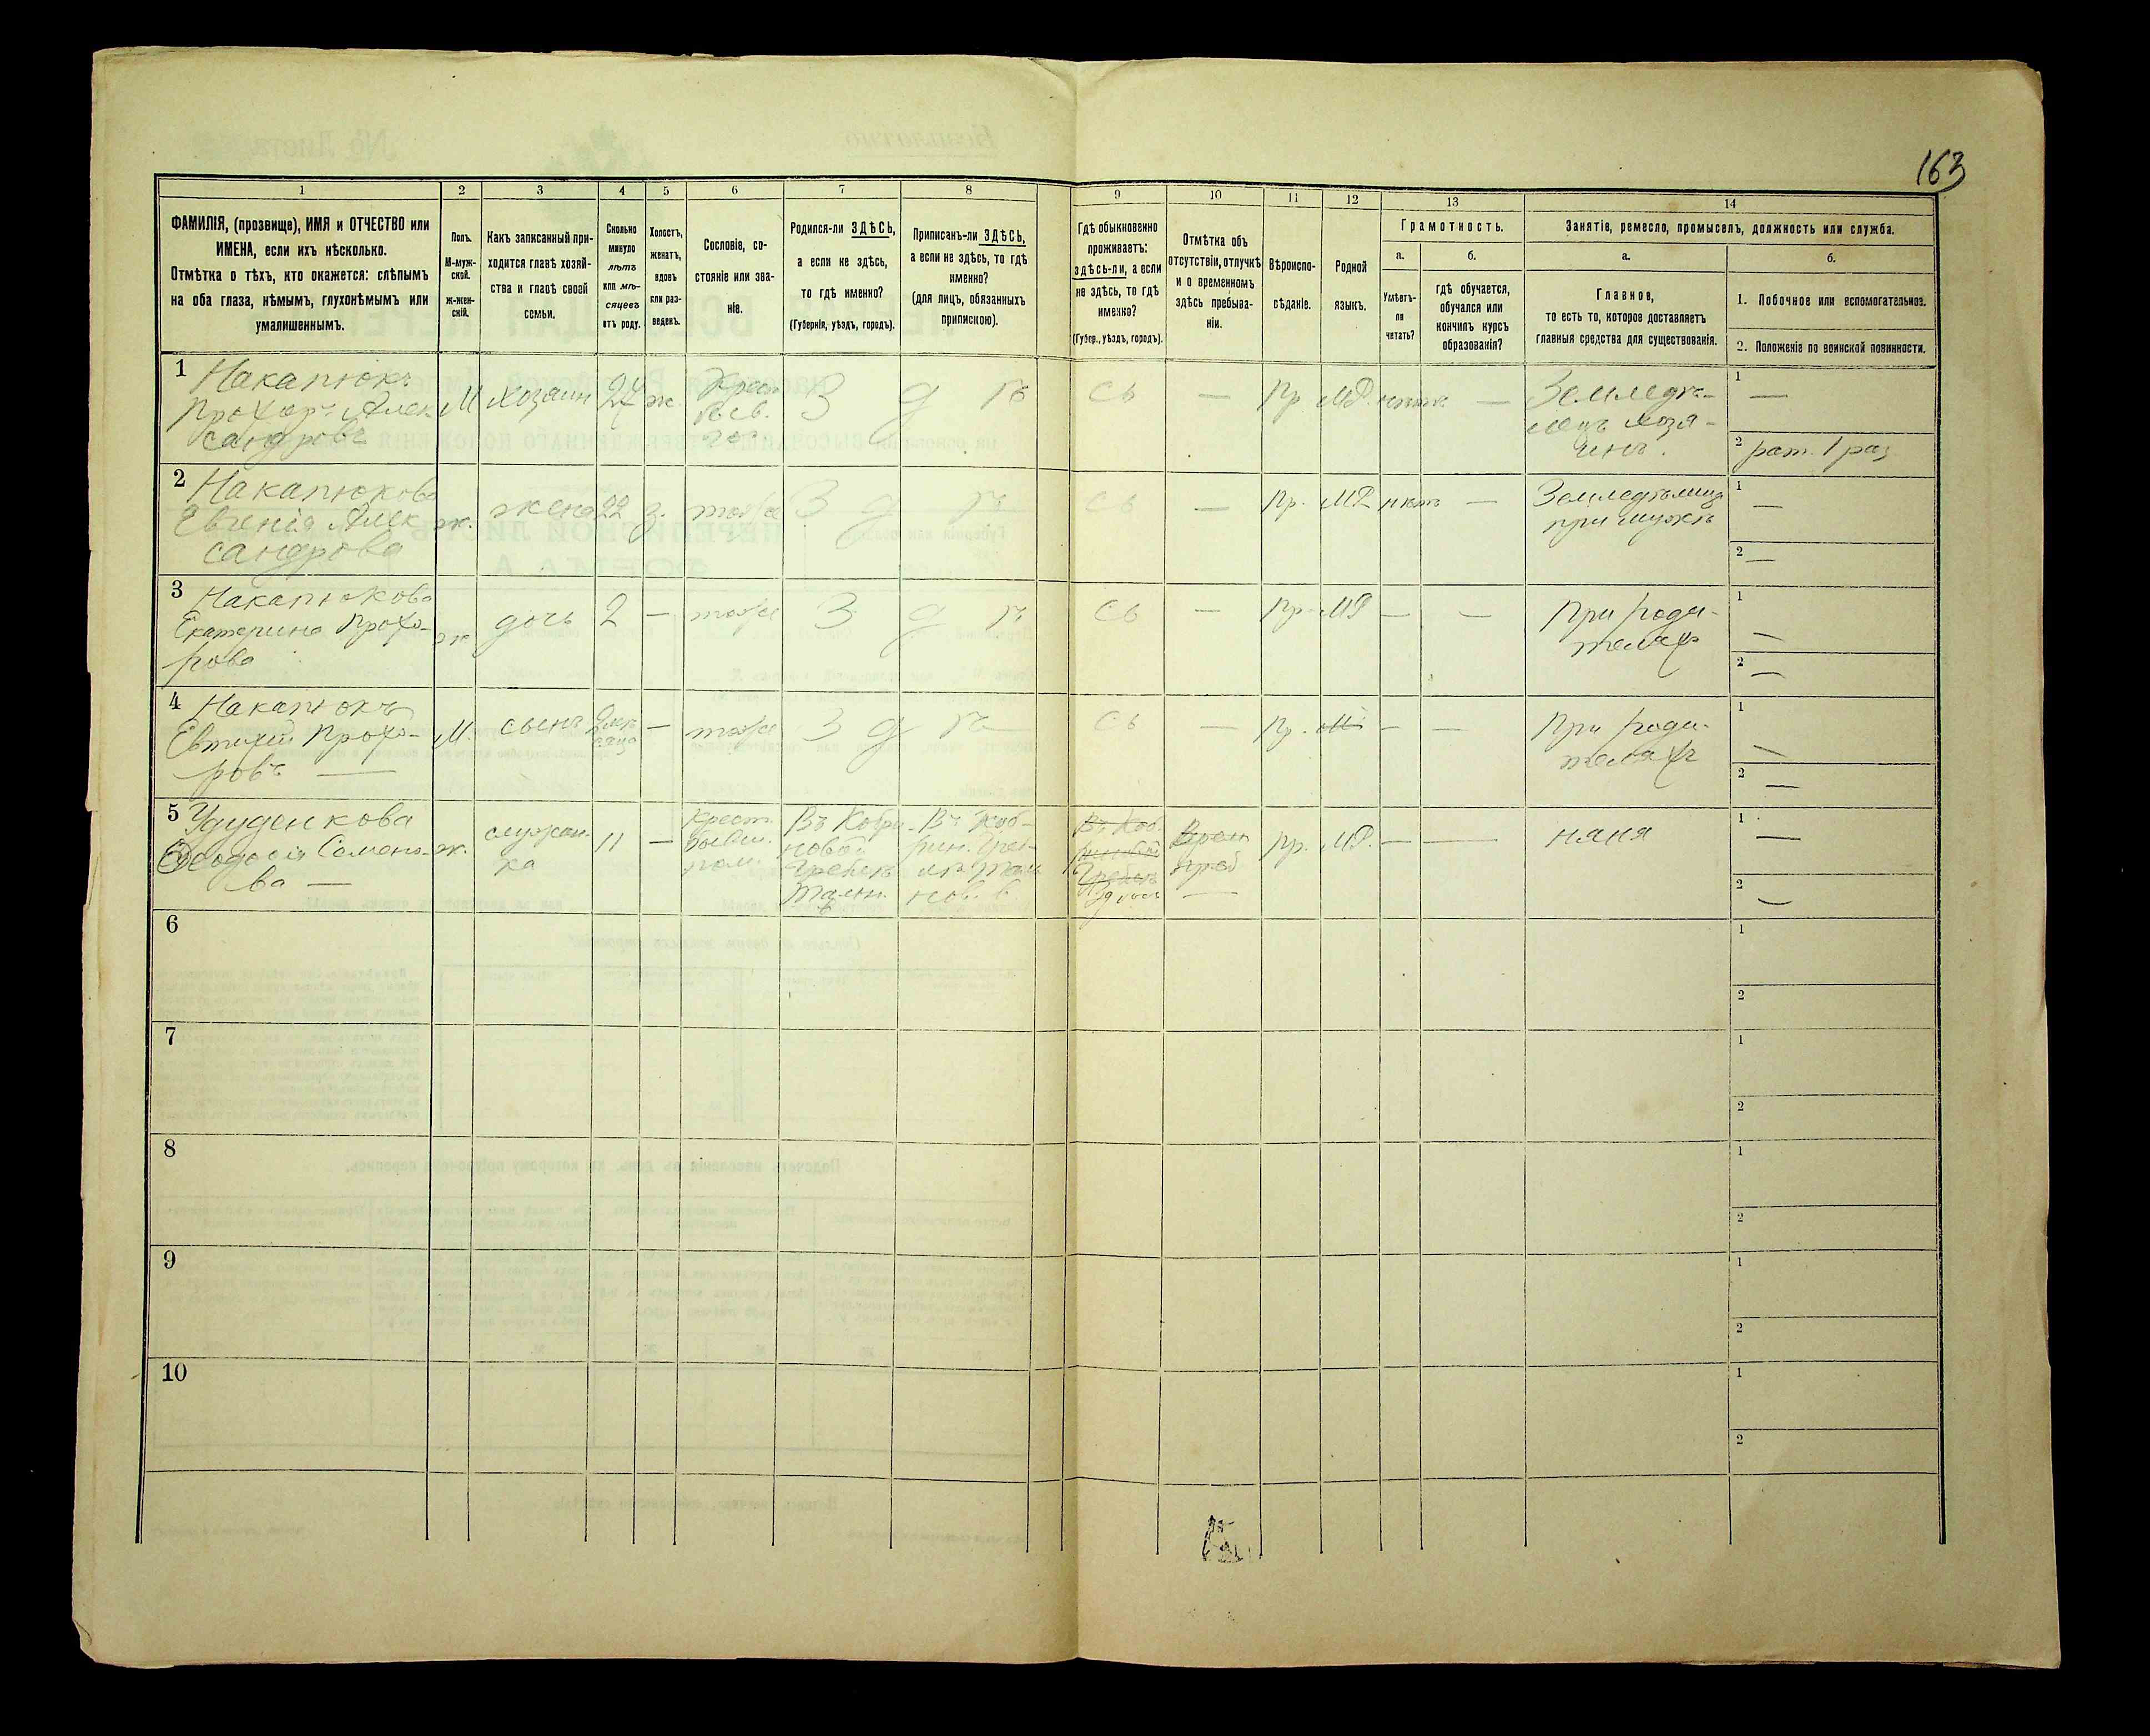 163
1
2
3
4
5
6
7
8
9
10
11
12
13
14
ФАМИЛІЯ, (прозвище), ИМЯ и ОТЧЕСТВО или
ИМЕНА, если ихъ нѣсколько.
Отмѣтка о тѣхъ, кто окажется: слѣпымъ
на оба глаза, нѣмымъ, глухонѣмымъ или
умалишеннымъ.
Полъ.
М-муж-
ской.
ж-жен-
скій.
Какъ записанный при-
ходится главѣ хозяй-
ства и главѣ своей
семьи.
Сколько
минуло
лѣтъ
или мѣ-
сяцевъ
отъ роду.
Холостъ,
женатъ,
вдовъ
или раз-
веденъ.
Сословіе, со-
стояніе или зва-
ніе.
Родился-ли ЗДѢСЬ,
а если не здѣсь,
то гдѣ именно?
(Губернія, уѣздъ, городъ).
Приписанъ-ли ЗДѢСЬ,
а если не здѣсь, то гдѣ
именно?
(для лицъ, обязанныхъ
припискою).
Гдѣ обыкновенно
проживаетъ:
здѣсь-ли, а если
не здѣсь, то гдѣ
именно?
(Губер., уѣздъ, городъ).
Отмѣтка объ
отсутствіи, отлучкѣ
и о временномъ
здѣсь пребыва-
ніи.
Вѣроиспо-
вѣданіе.
Родной
языкъ.
Грамотность.
а.
Умѣетъ-
ли
читать?
б.
гдѣ обучается,
обучался или
кончилъ курсъ
образованія?
Занятіе, ремесло, промыселъ, должность или служба.
а.
Главное,
то есть то, которое доставляетъ
главныя средства для существованія.
б.
1. Побочное или вспомогательное.
2. Положеніе по воинской повинности.
1
Накапюкъ
Прохоръ Алек
сандровъ
М
хозаин
ж.
Крест.
З д ѣ
сь
—
Пр.
МР.
—
Земледѣ-
лецъ хозя-
инъ.
1 —
2 рат. 1 раз
2
Накапюкова
Евгенія Алек
сандрова
ж.
жена
22
з.
тоже
З д ѣ
сь
—
Пр.
МР
нѣтъ
—
Земледѣлица
при мужѣ
1 —
2 —
3
Накапюкова
Екатерина Прохо-
рова
ж
дочь
2
—
тоже
З д ѣ
сь
—
Пр.
МР
—
—
При роди-
телях
1 —
2 —
4
Накапюкъ
Евтихій Прохо-
ровъ —
М.
сынъ
—
тоже
З д ѣ
сь
—
Пр.
—
—
При роди-
теляхъ
1 —
2 —
5
Удуденкова
Ѳеодосія Семено-
ва —
ж.
служан-
ка
11
—
Крест.
бывш.
пом.
Въ Кобри-
Въ Коб-
рин.
Въ Коб.
здѣсь
—
Пр.
МР.
—
—
няня
1 —
2 —
6
1
2
7
1
2
8
1
2
9
1
2
10
1
2